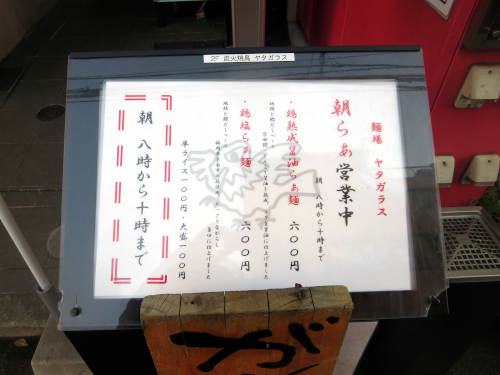 2F 直火焼鳥 ヤタガラス
麺場 ヤタガラス
朝らぁ営業中
朝 八時から十時まで
・鶏熟成醤油らぁ麺 六〇〇円
・鶏塩らぁ麺 六〇〇円
半ライス一〇〇円・大盛一〇〇円
朝 八時から十時まで
が